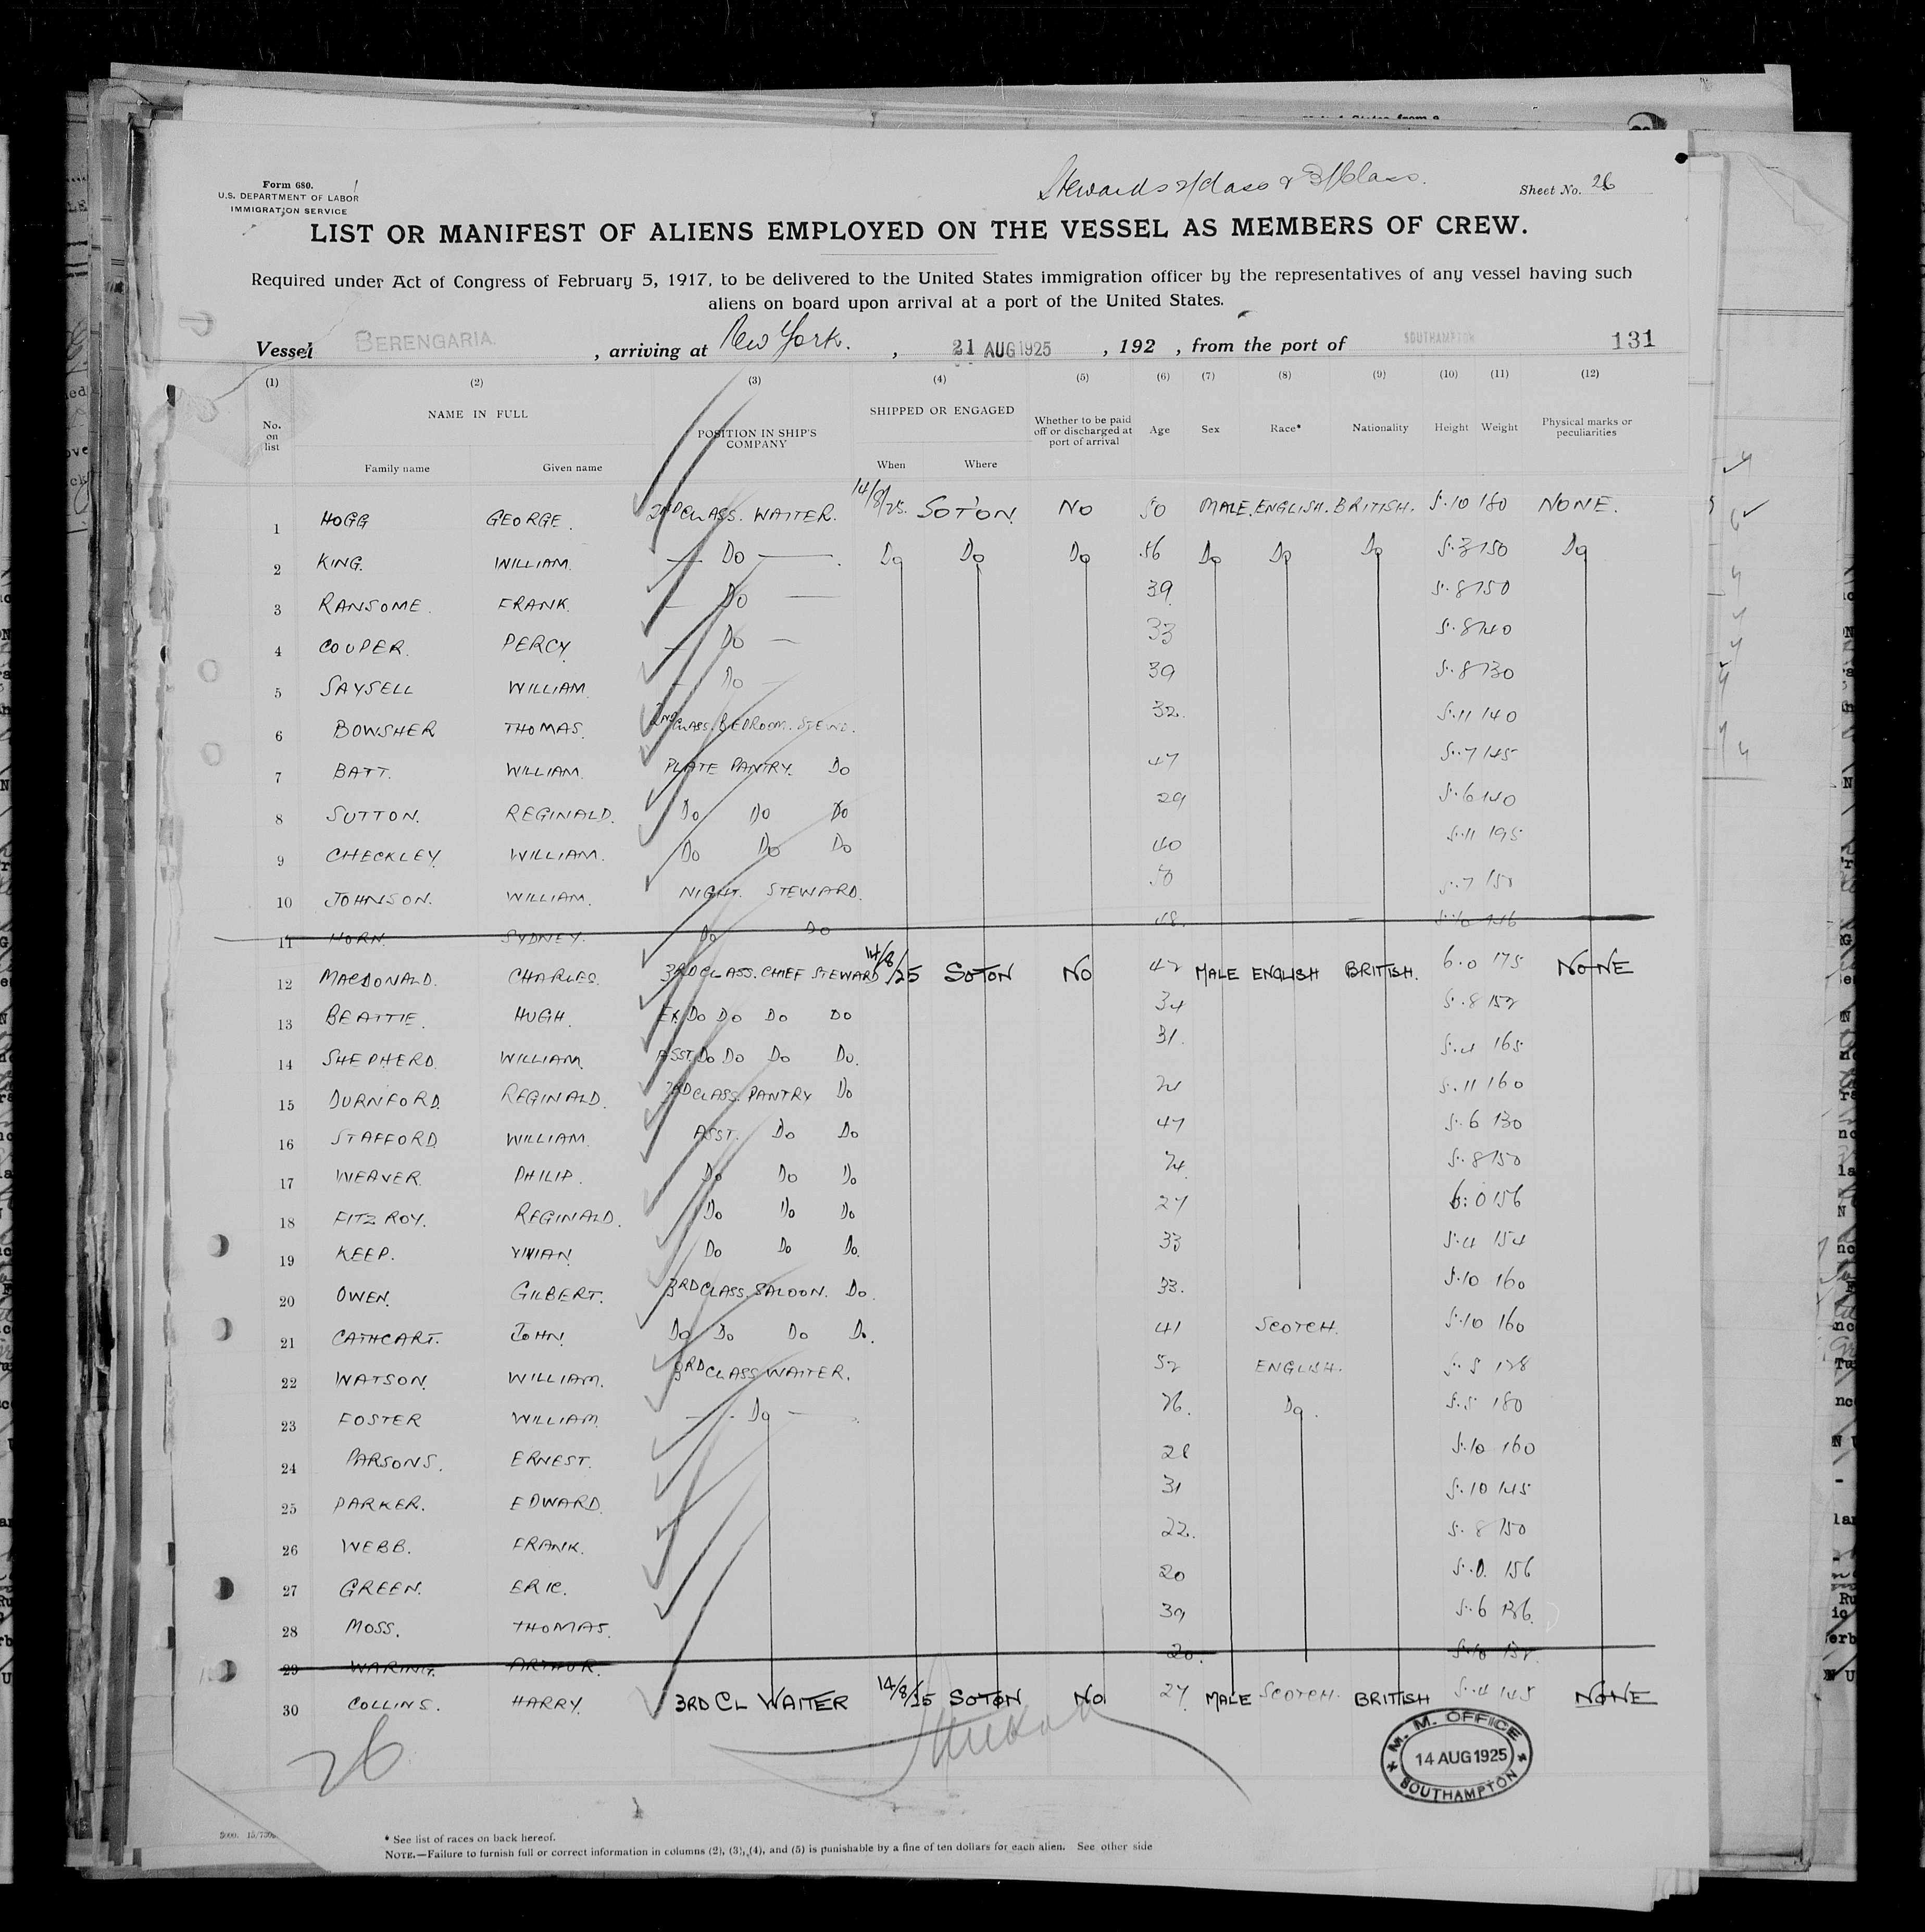 Form 680.
U.S. DEPARTMENT OF LABOR
IMMIGRATION SERVICE
Stewards 2/Class & 3/Class.
Sheet No. 26
LIST OR MANIFEST OF ALIENS EMPLOYED ON THE VESSEL AS MEMBERS OF CREW.
Required under Act of Congress of February 5, 1917, to be delivered to the United States immigration officer by the representatives of any vessel having such
aliens on board upon arrival at a port of the United States.
Vessel BERENGARIA , arriving at New York. , 21 AUG 1925 , 192 , from the port of SOUTHAMPTON 131
(1) (2) (3) (4) (5) (6) (7) (8) (9) (10) (11) (12)
No. on list NAME IN FULL Family name Given name POSITION IN SHIP'S COMPANY SHIPPED OR ENGAGED When Where Whether to be paid off or discharged at port of arrival Age Sex Race* Nationality Height Weight Physical marks or peculiarities
1 HOGG GEORGE. 2ND CLASS. WAITER. 14/8/25. SOTON. NO 50 MALE. ENGLISH. BRITISH. 5.10 180 NONE.
2 KING. WILLIAM. — Do — Do Do Do 56 Do Do Do 150 Do
3 RANSOME. FRANK. — Do — 39. 5.8 150
4 COUPER. PERCY. — Do — 33 5.8 140
5 SAYSELL WILLIAM. — Do — 39 5.8 130
6 BOWSHER THOMAS. 2ND CLASS. BEDROOM. STEWD. 32. 5.11 140
7 BATT. WILLIAM. PLATE PANTRY. Do 47 5.7 145
8 SUTTON. REGINALD. Do Do Do 29 5.6 140
9 CHECKLEY. WILLIAM. Do Do Do 40 5.11 195
10 JOHNSON. WILLIAM. NIGHT. STEWARD. 50 5.7 150
11 HORN. SYDNEY. Do Do 48.
12 MACDONALD. CHARLES. 3RD CLASS. CHIEF STEWARD 14/8/25 SOTON NO 42 MALE ENGLISH BRITISH. 6.0 175 NONE
13 BEATTIE. HUGH. EX. Do Do Do Do 34 5.8 152
14 SHEPHERD. WILLIAM. ASST. Do Do Do Do. 31. 5.4 165
15 DURNFORD. REGINALD. 3RD CLASS. PANTRY Do 5.11 160
16 STAFFORD. WILLIAM. ASST. Do Do 47 5.6 130
17 WEAVER. PHILIP. Do Do Do 24. 5.8 150
18 FITZROY. REGINALD. Do Do Do 27 6.0 156
19 KEEP. VIVIAN. Do Do Do. 33 5.4 154
20 OWEN. GILBERT. 3RD CLASS. SALOON. Do. 33. 5.10 160
21 CATHCART. JOHN. Do Do Do Do. 41 SCOTCH. 5.10 160
22 WATSON. WILLIAM. 3RD CLASS WAITER. 52 ENGLISH. 5.5 128
23 FOSTER WILLIAM. — Do — 26. Do. 5.5 180
24 PARSONS. ERNEST. 5.10 160
25 PARKER. EDWARD. 31 5.10 145
26 WEBB. FRANK. 22. 5.8 150
27 GREEN. ERIC. 20 156
28 MOSS. THOMAS. 39 5.6 136.
29 WARING. ARTHUR. 20. 5.10
30 COLLINS. HARRY. 3RD CL WAITER 14/8/25 SOTON NO 27. MALE SCOTCH. BRITISH 5.4 145 NONE
26
M. M. OFFICE
14 AUG 1925
SOUTHAMPTON
* See list of races on back hereof.
NOTE.—Failure to furnish full or correct information in columns (2), (3), (4), and (5) is punishable by a fine of ten dollars for each alien. See other side